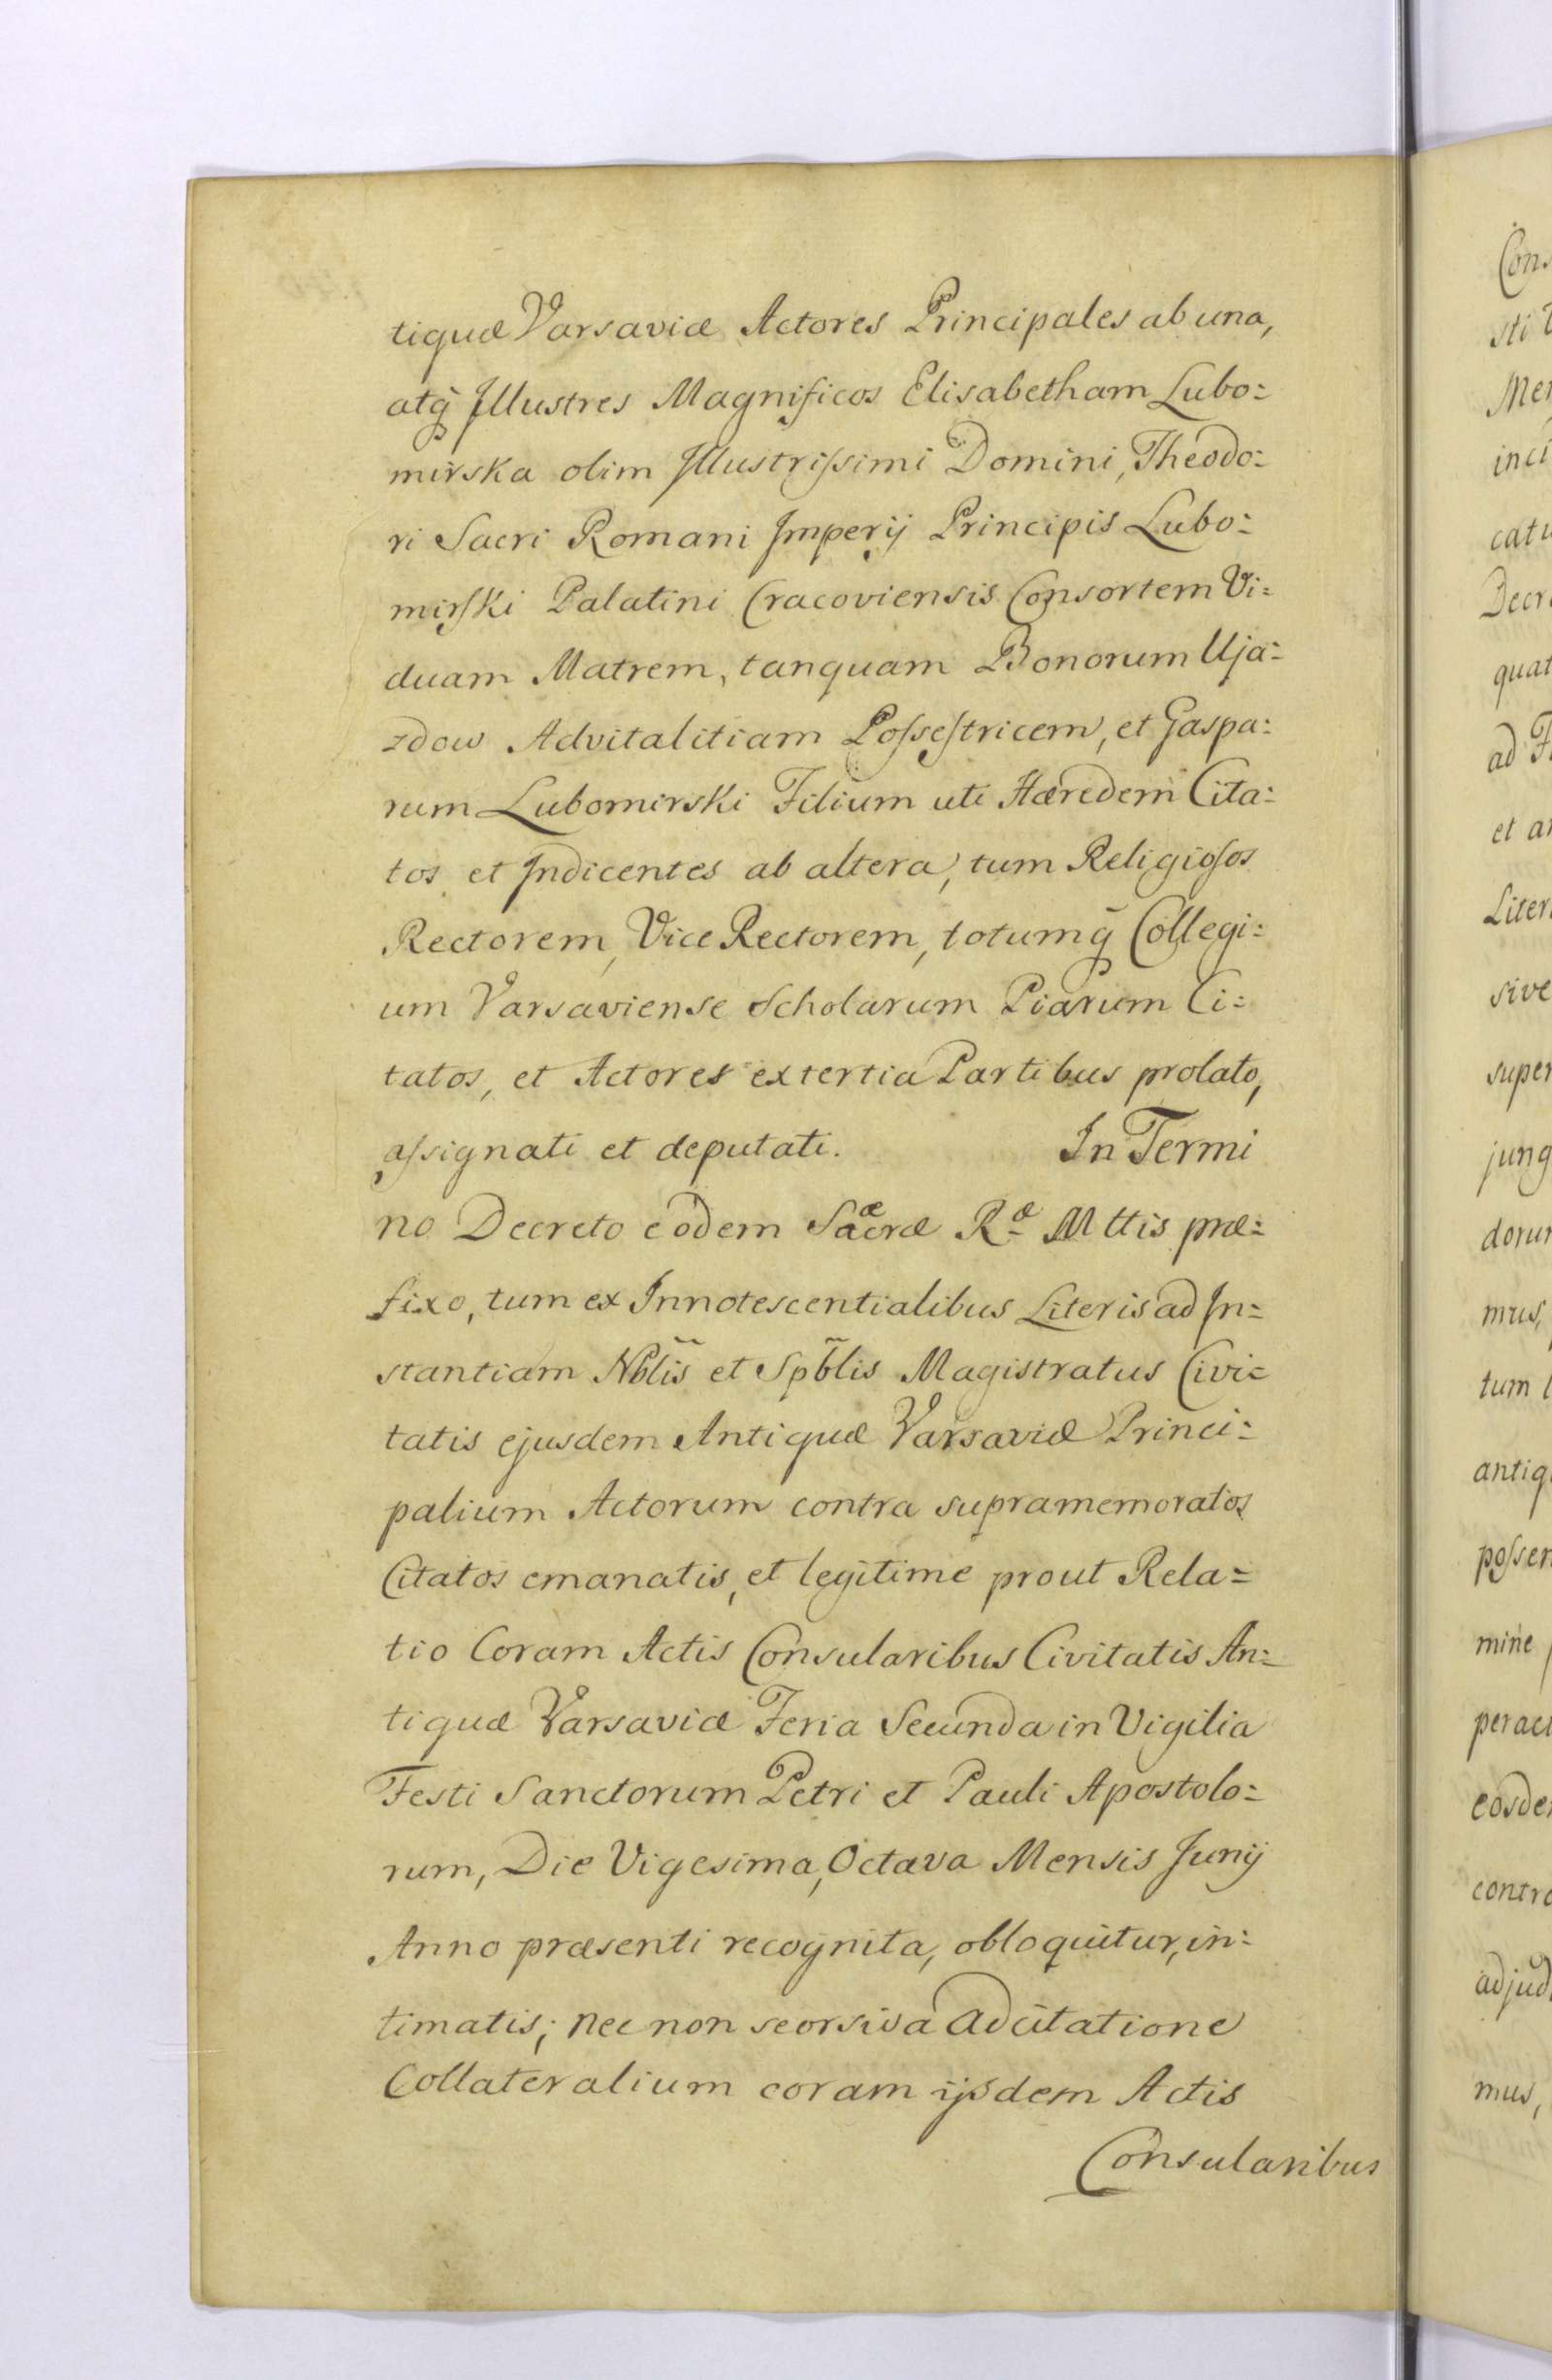 tiquæ Varsaviæ Actores Principales ab una,
atq̃ Illustres Magnificos Elisabetham Lubo=
mirska olim Illustriſsimi Domini, Theodo=
ri Sacri Romani Imperij Principis Lubo=
mirſki Palatini Cracoviensis Consortem Vi=
duam Matrem, tanquam Bonorum Uja=
zdow Advitalitiam Poſseſtricem, et Gaspa=
rum Lubomirski Filium uti Hæredem Cita=
tos et Indicentes ab altera, tum Religioſos
Rectorem, Vice Rectorem, totumq̃ Collegi=
um Varsaviense Scholarum Piarum Ci=
tatos, et Actores ex tertia Partibus prolato,
aſsignati et deputati. In Termi
no Decreto eodem Sacræ Rᵆ Mttis præ=
fixo, tum ex Innotescentialibus Literis ad In=
stantiam Nb̃lis et Spb̃lis Magistratus Civi=
tatis ejusdem Antiquæ Varsaviæ Princi=
palium Actorum contra supramemoratos
Citatos emanatis, et legitime prout Rela=
tio Coram Actis Consularibus Civitatis An=
tiquæ Varsaviæ Feria Secunda in Vigilia
Festi Sanctorum Petri et Pauli Apostolo=
rum, Die Vigesima, Octava Mensis Junij
Anno præsenti recognita, obloquitur, in=
timatis; nec non seorsiva Adcitatione
Collateralium coram ijsdem Actis
Consularibus